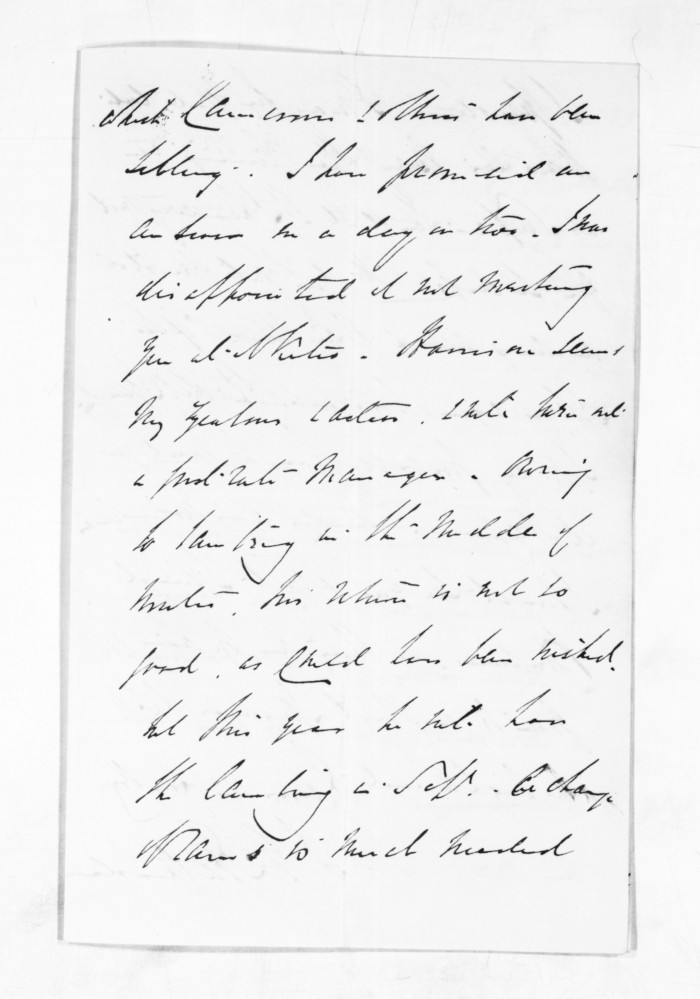 which Cameron & others have been
selling. I have promised an
answer in a day or two. I was
disappointed at not meeting
you at Harrison seems
very zealous & active, & will turn out
a first rate manager. Owing
to lambing in the middle of
winter, his return is not so
good, as could have been wished,
but this year he will have
the lambing in Sept. - A change
of Rams is much needed